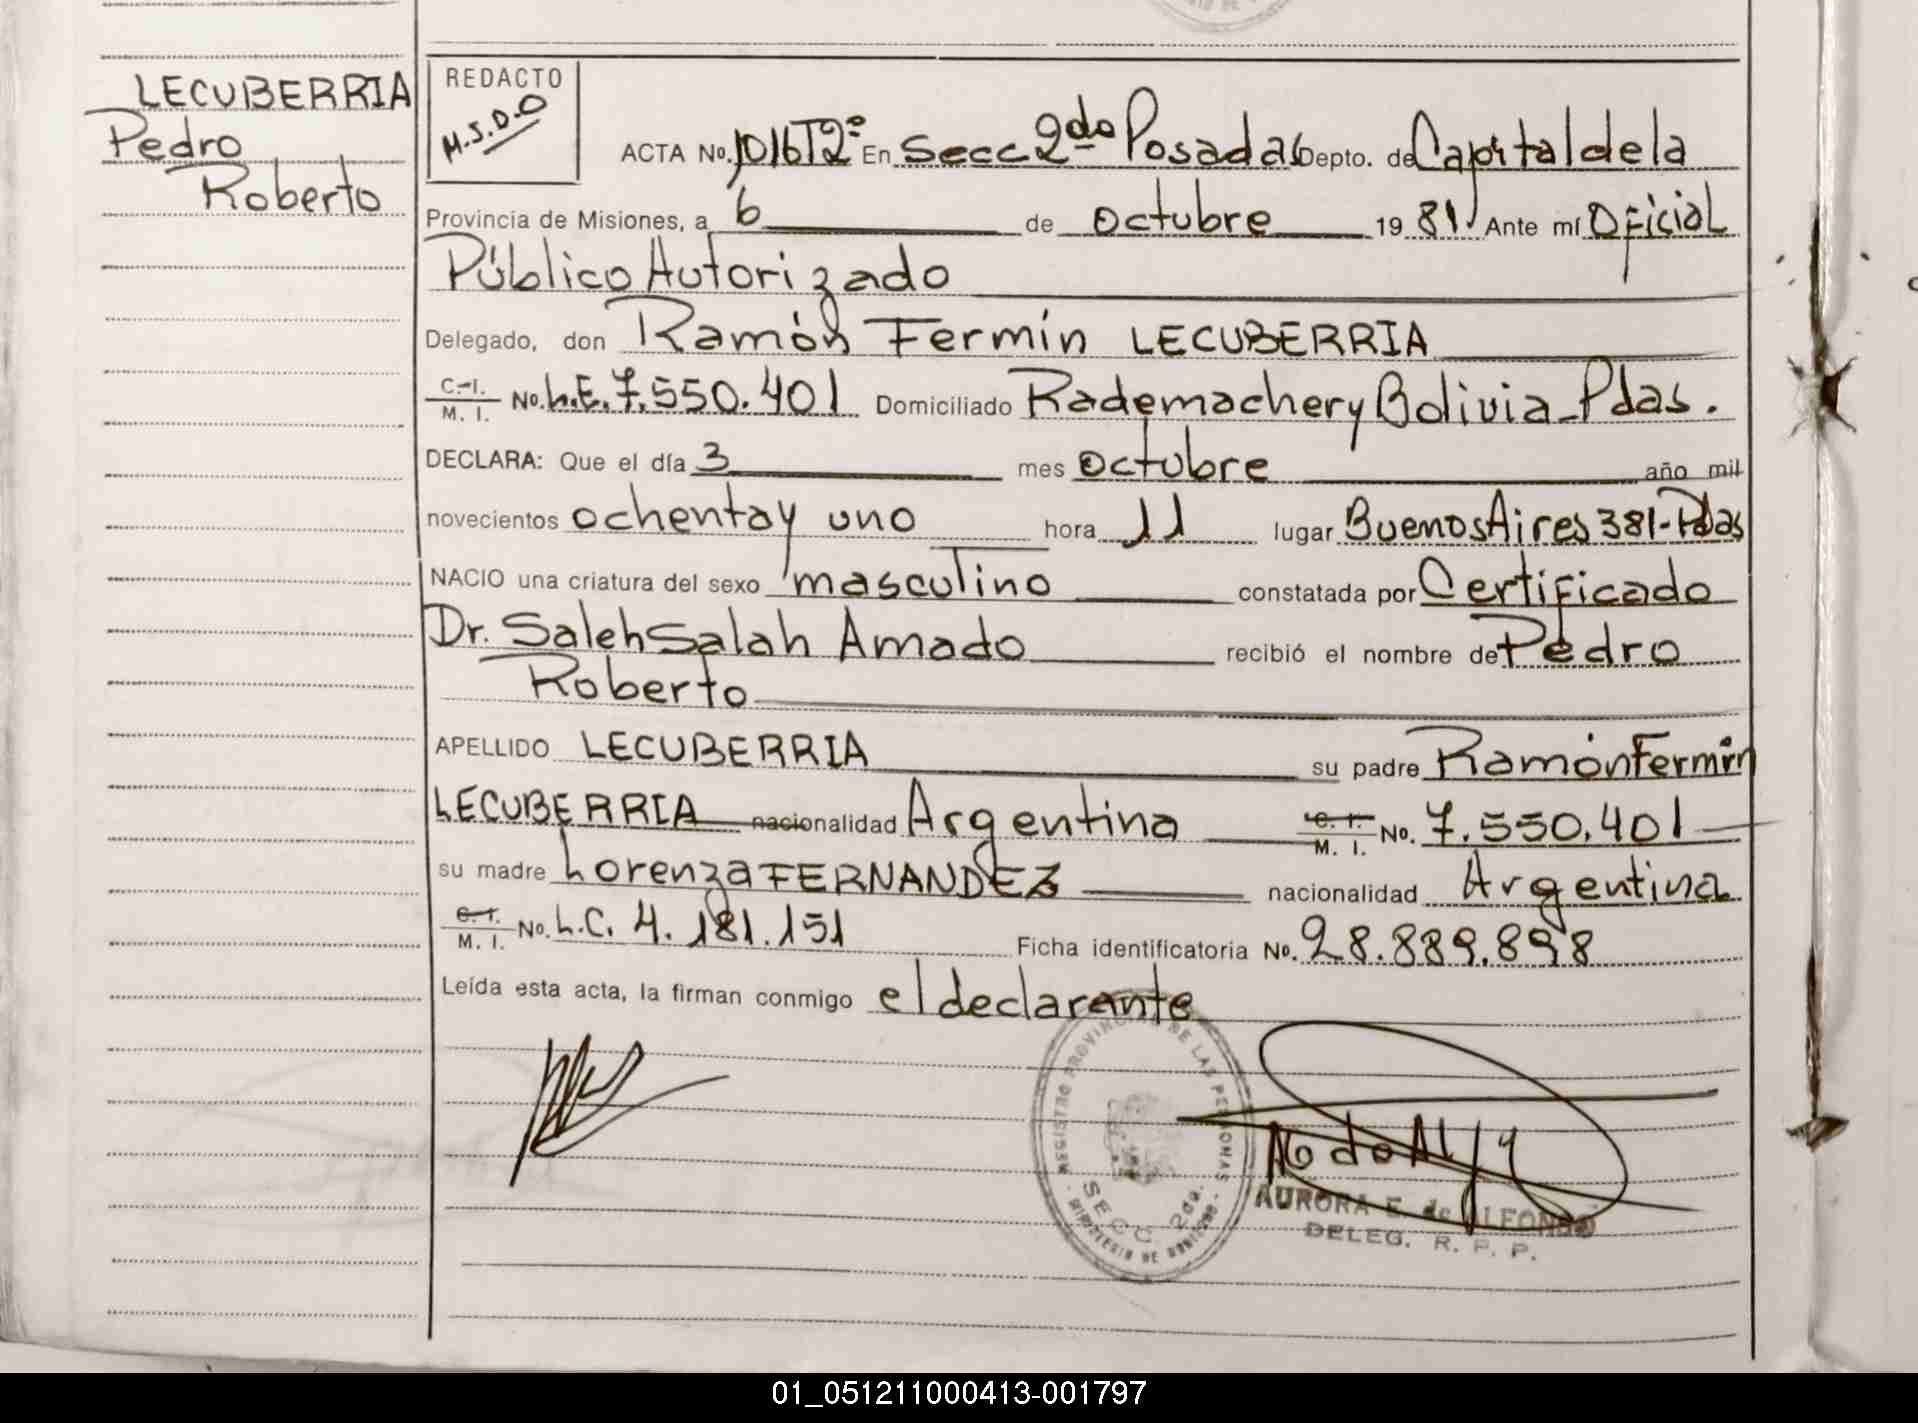 LECUBERRIA
Pedro
Roberto
REDACTO
M.S.D.O
ACTA No. 1016T2º En Secc 2do Posadas Depto. de Capital de la
Provincia de Misiones, a 6 de octubre 19 81 Ante mí Oficial
Público Autorizado
Delegado, don Ramón Fermín LECUBERRIA
C.I. M. I. No. L.E. 7.550.401 Domiciliado Rademacher y Bolivia - Pdas.
DECLARA: Que el día 3 mes octubre año mil
novecientos ochenta y uno hora 11 lugar Buenos Aires 381 - Pdas
NACIO una criatura del sexo masculino constatada por Certificado
Dr. Saleh Salah Amado recibió el nombre de Pedro
Roberto
APELLIDO LECUBERRIA su padre Ramón Fermín
LECUBERRIA nacionalidad Argentina C. I. M. I. No. 7.550.401
su madre Lorenza FERNANDEZ nacionalidad Argentina
C. I. M. I. No. L.C. 4.181.151 Ficha identificatoria No. 28.889.898
Leída esta acta, la firman conmigo el declarante
REGISTRO PROVINCIAL DE LAS PERSONAS
SECC 2da.
AURORA E. de ALFONSO
DELEG. R. P. P.
01_051211000413-001797